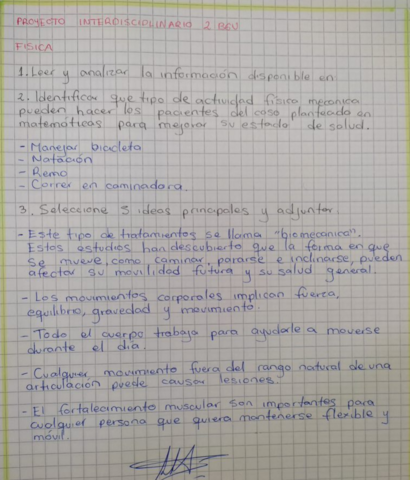 PROYECTO INTERDISCIPLINARIO 2 BGU
FISICA
1. Leer y analizar la información disponible en
2. Identificar que tipo de actividad física mecánica
pueden hacer los pacientes del caso planteado en
matemáticas para mejorar su estado de salud.
- Manejar bicicleta
- Natación
- Remo
- Correr en caminadora.
3. Seleccione 5 ideas principales y adjuntar
- Este tipo de tratamientos se llama "biomecanica".
Estos estudios han descubierto que la forma en que
se mueve, como caminar, pararse e inclinarse, pueden
afectar su movilidad futura y su salud general.
- Los movimientos corporales implican fuerza,
equilibrio, gravedad y movimiento.
- Todo el cuerpo trabaja para ayudarle a moverse
durante el día.
- Cualquier movimiento fuera del rango natural de una
articulación puede causar lesiones.
- El fortalecimiento muscular son importantes para
cualquier persona que quiera mantenerse flexible y
móvil.